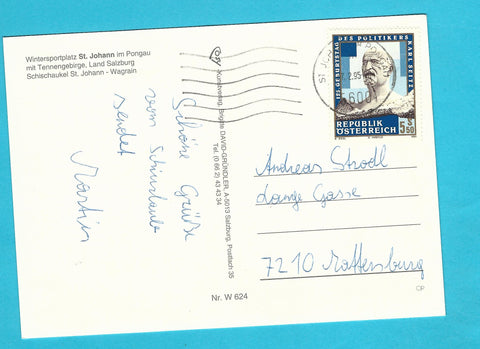 Wintersportplatz St. Johann im Pongau
mit Tennengebirge, Land Salzburg
Schischaukel St. Johann - Wagrain
Schöne Grüße
vom Schiurlaub
sendet
Martin
Kunstverlag, Brigitte DAVID-GRÜNDLER, A-5013 Salzburg, Postfach 35
Tel. (0 66 2) 43 43 34
Nr. W 624
125. GEBURTSTAG DES POLITIKERS KARL SEITZ
REPUBLIK
ÖSTERREICH
5 S
50
ST. JOH
2.95
600
Andreas Strodl
Lange Gasse
7210 Mattersburg
CP